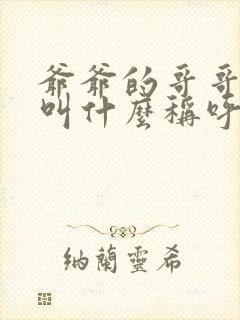 爺爺的哥哥
叫什麼稱呼
納蘭靈希